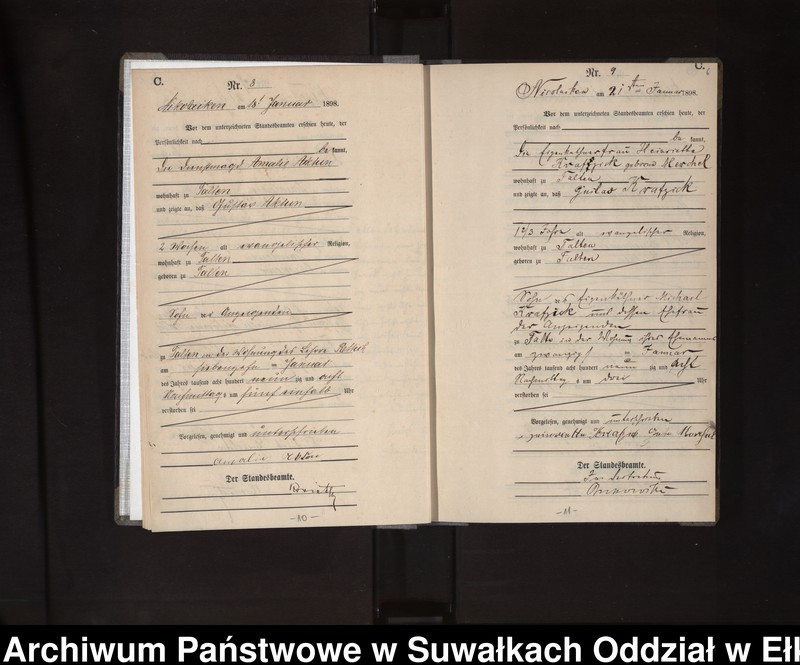 C.
Nr. 8
Nikolaiken am 18t Januar 1898.
Vor dem unterzeichneten Standesbeamten erschien heute, der
Persönlichkeit nach
be kannt,
Die Dienstmagd Amalie
wohnhaft zu Talten
und zeigte an, daß Gustav
2 Wochen alt evangelischer Religion,
wohnhaft zu Talten
geboren zu Talten
Sohn der Anzeigenden
zu Talten in der Wohnung des
am siebenzehn Januar
des Jahres tausend acht hundert neun zig und acht
Nachmittags um fünf einhalb Uhr
verstorben sei
Vorgelesen, genehmigt und unterschrieben
Amalie
Der Standesbeamte.
-10-
C.
Nr. 9
Nicolaiken am 21ten Januar 1898.
Vor dem unterzeichneten Standesbeamten erschien heute, der
Persönlichkeit nach
be kannt,
Die Eigenkäthnerfrau Heinriette
Krafzick geborene
wohnhaft zu Talten
und zeigte an, daß Gustav Krafzick
1 2/3 Jahre alt evangelischer Religion,
wohnhaft zu Talten
geboren zu Talten
Sohn des Eigenkäthner Michael
Krafzick und dessen Ehefrau
der Anzeigenden
zu Talten in der Wohnung ihres Ehemannes
am Januar
des Jahres tausend acht hundert neun zig und acht
Nachmittags um drei Uhr
verstorben sei
Vorgelesen, genehmigt und unterschrieben
Der Standesbeamte.
In Vertretung
-11-
Archiwum Państwowe w Suwałkach Oddział w Ełk